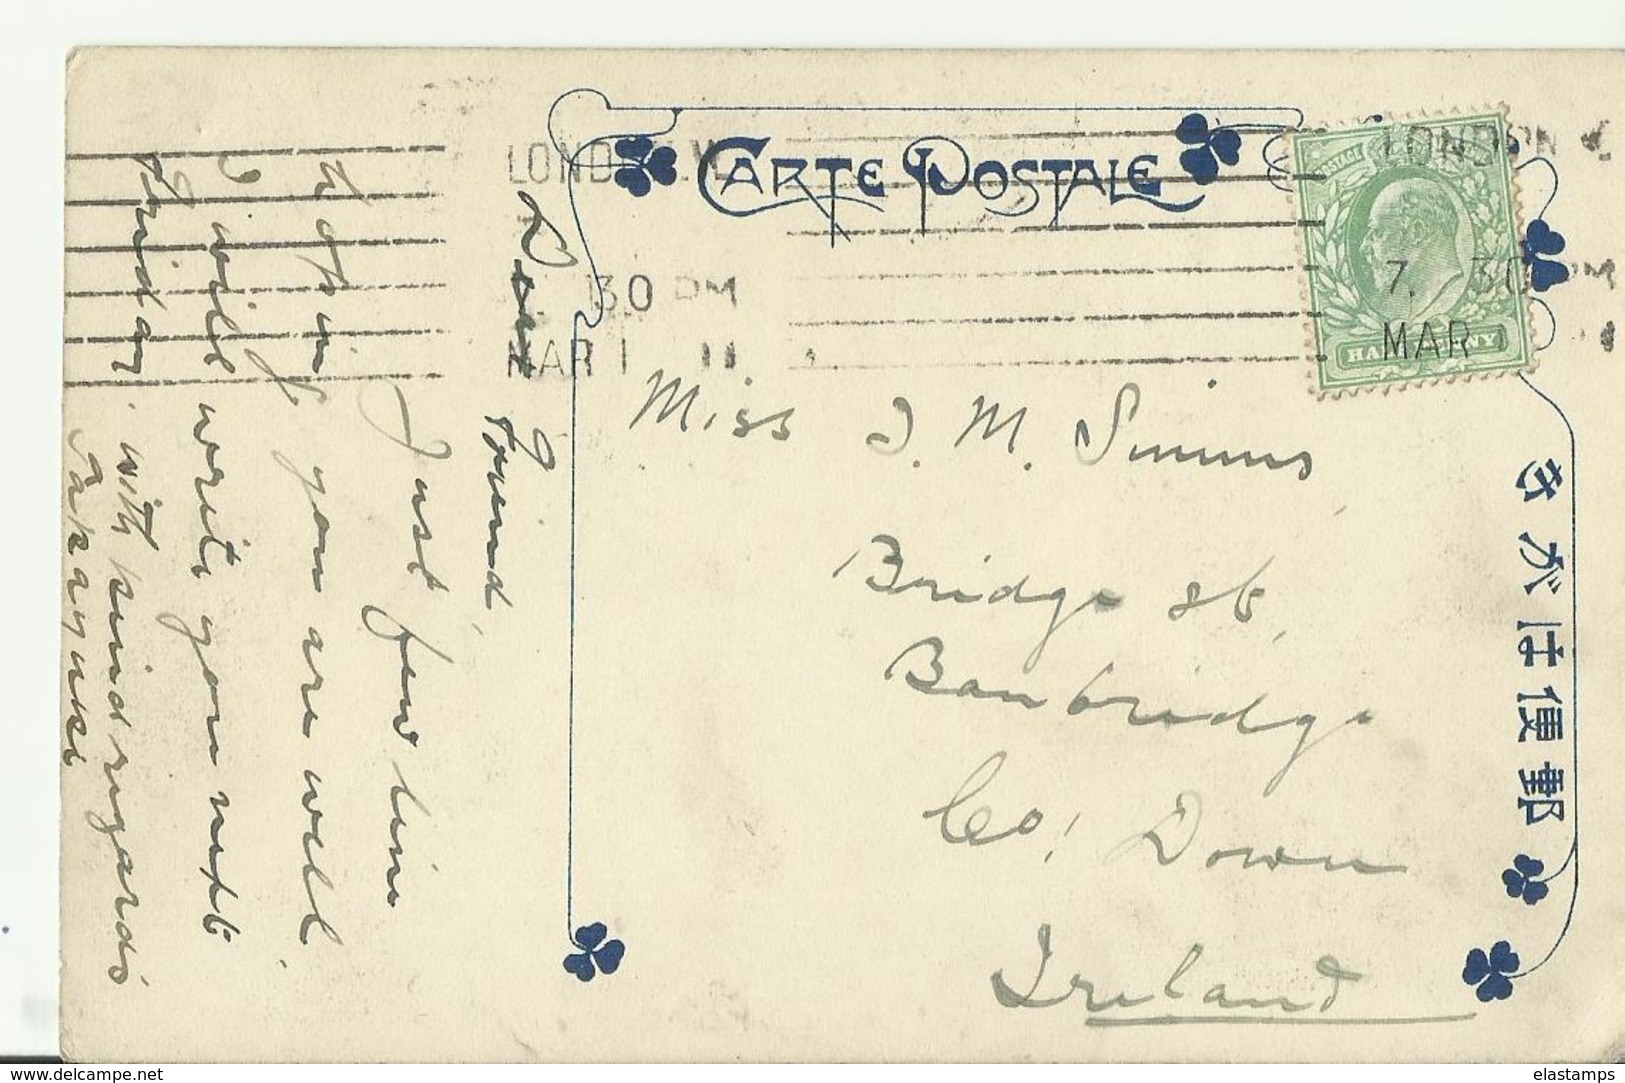 CARTE POSTALE
きがは便郵
LONDON W
7.30 PM
MAR 1 11
LONDON
7. 30 PM
MAR 1 11
POSTAGE
HALFPENNY
Miss J. M. Simms
Bridge St.
Banbridge
Co. Down
Ireland
Dear Friend,
Just few line
hoping you are well.
I will write you next
Friday. with kind regards
www.delcampe.net
elastamps